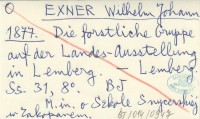 O EXNER Wilhelm Johann
1877. Die forstliche Gruppe
auf der Landes-Ausstellung
in Lemberg. — Lemberg.
Ss. 31, 8°. BJ
M. in. o Szkole Snycerskiej
w Zakopanem.